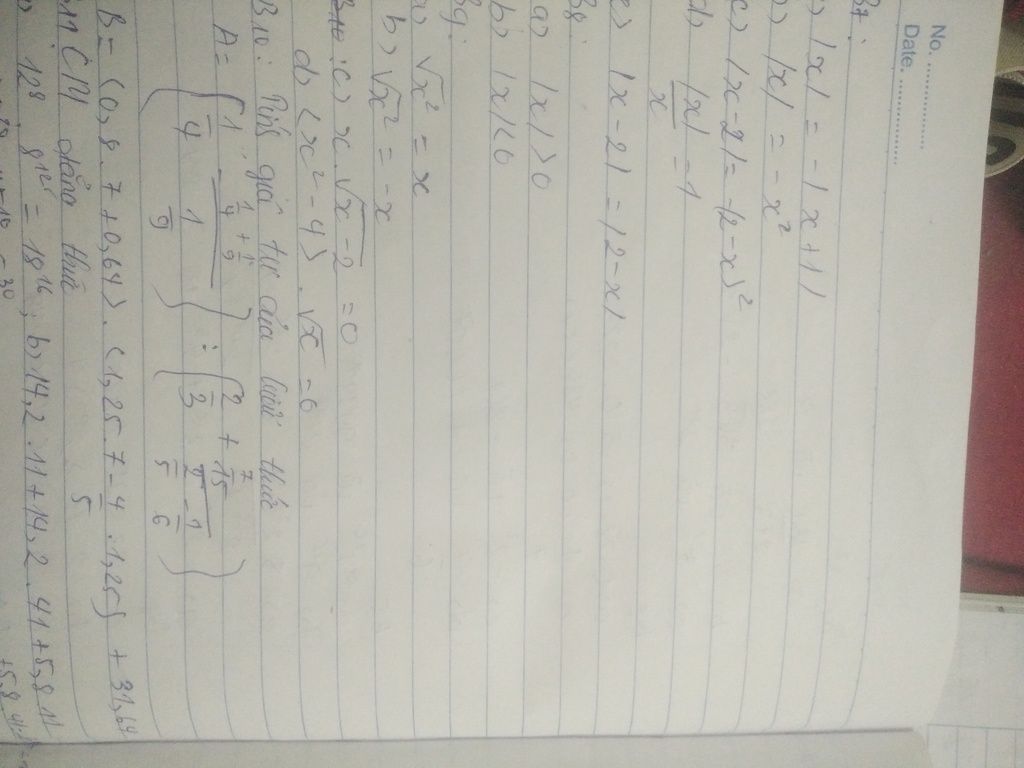 No. ..................
Date. ..................
B7:
a) |x| = -|x+1|
b) |x| = -x²
c) |x-2| = -(2-x)²
d) |x|/x = -1
e) |x-2| = |2-x|
B8:
a) |x| > 0
b) |x| < 0
B9:
a) √x² = x
b) √x² = -x
c) x . √x-2 = 0
d) (x² - 4) . √x = 0
B10: giá trị của biểu thức
B = (0,8 . 7 + 0,64) . (1,25 . 7 - 4/5 . 1,25) + 31,64
B11 CM đẳng thức
a) 12⁸ . 9¹² = 18¹⁶ ; b) 14,2 . 11 + 14,2 . 41 + 5,8 . 11